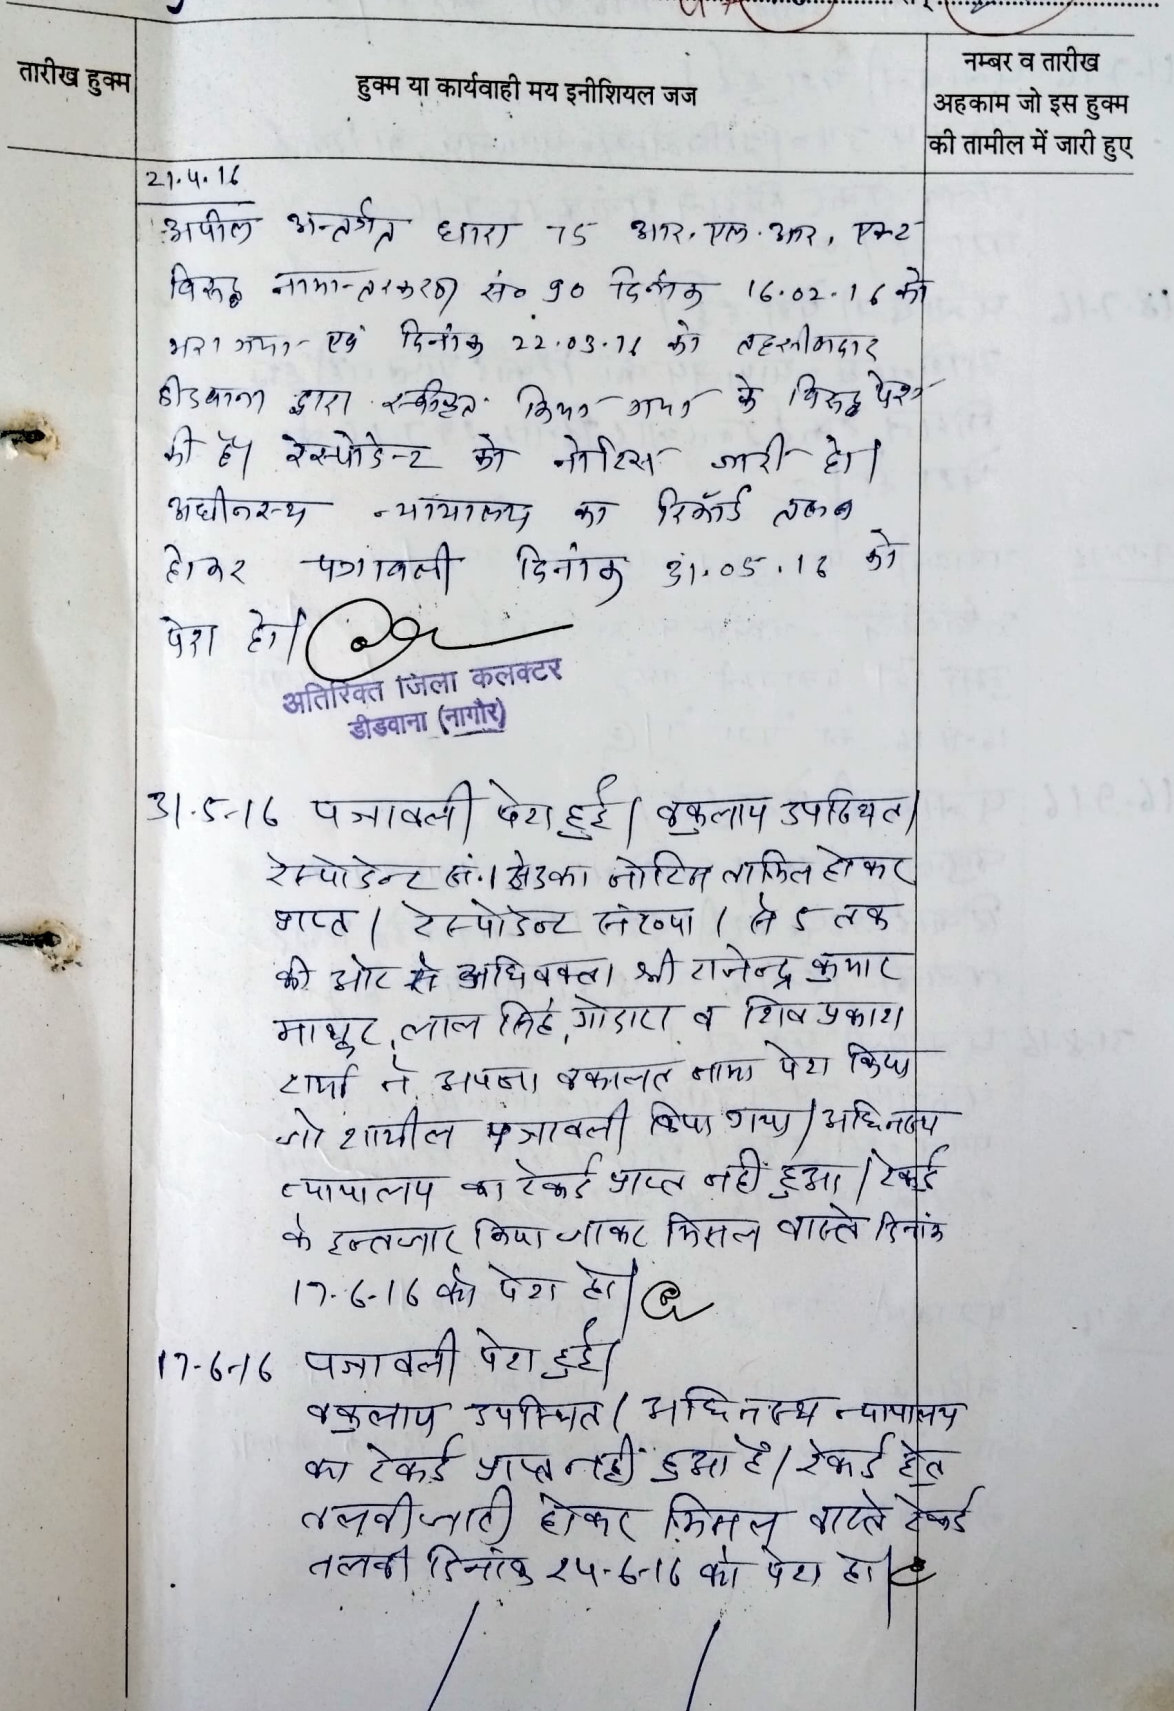 तारीख हुक्म
हुक्म या कार्यवाही मय इनीशियल जज
नम्बर व तारीख
अहकाम जो इस हुक्म
की तामील में जारी हुए
21.4.16
अपील अन्तर्गत धारा 75 आर.एल.आर. एक्ट
विरूद्ध नामान्तरकरण सं० 90 दिनांक 16.02.16 को
भरा गया एवं दिनांक 22.03.16 को तहसीलदार
डीडवाना द्वारा स्वीकृत किया गया के विरूद्ध पेश
की है। रेस्पोडेन्ट को नोटिस जारी हो।
अधीनस्थ न्यायालय का रिकॉर्ड तलब
होकर पत्रावली दिनांक 31.05.16 को
पेश हो।
अतिरिक्त जिला कलक्टर
डीडवाना (नागौर)
31-5-16 पत्रावली पेश हुई। वकुलाय उपस्थित।
रेस्पोडेन्ट सं. 1 से 5 का नोटिस तामिल होकर
प्राप्त। रेस्पोडेन्ट संख्या 1 से 5 तक
की ओर से अधिवक्ता श्री राजेन्द्र कुमार
माथूर, लाल सिंह, गोडारा व शिव प्रकाश
शर्मा ने अपना वकालत नामा पेश किया
जो शामील पत्रावली किया गया। अधिनस्थ
न्यायालय का रेकर्ड प्राप्त नहीं हुआ। रेकर्ड
के इन्तजार किया जाकर मिसल वास्ते दिनांक
17-6-16 को पेश हो।
17-6-16 पत्रावली पेश हुई।
वकुलाय उपस्थित। अधिनस्थ न्यायालय
का रेकर्ड प्राप्त नहीं हुआ है। रेकर्ड हेतु
तलबी जारी होकर मिसल वास्ते रेकर्ड
तलबी दिनांक 24-6-16 को पेश हो।